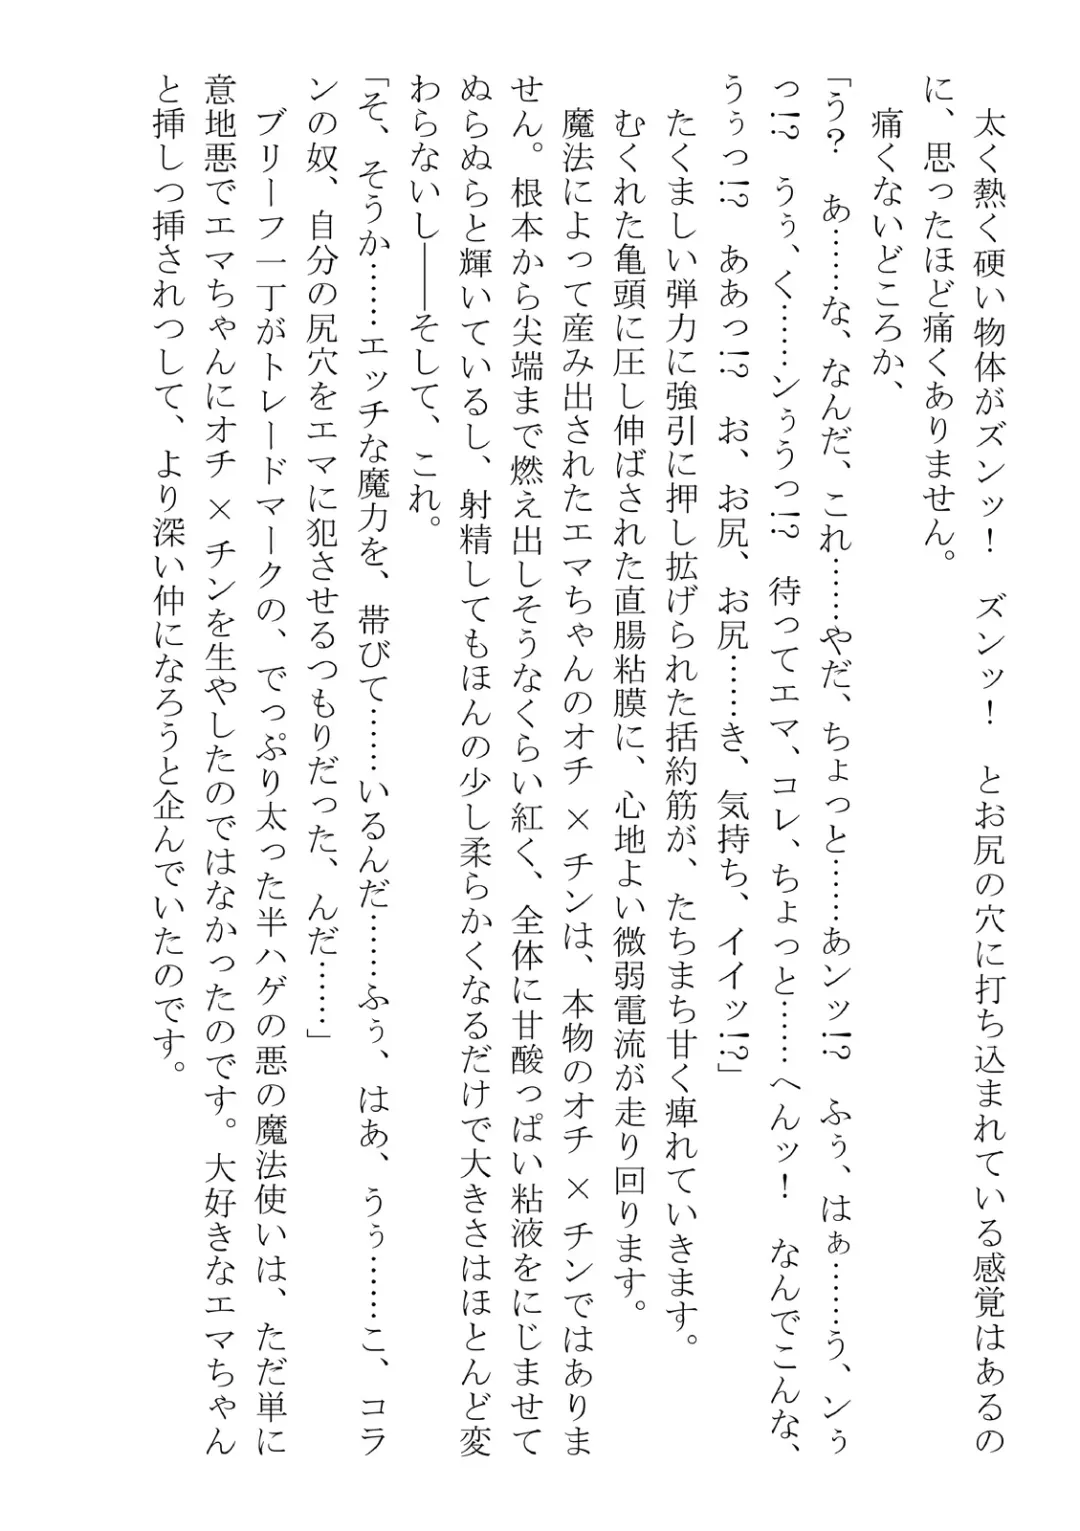 太く熱く硬い物体がズンッ！　ズンッ！　とお尻の穴に打ち込まれている感覚はあるの
に、思ったほど痛くありません。
痛くないどころか、
「う？　あ……な、なんだ、これ……やだ、ちょっと……あンッ!?　ふぅ、はぁ……う、ンぅ
っ!?　うぅ、く……ンぅうっ!?　待ってエマ、コレ、ちょっと……へんッ！　なんでこんな、
うぅっ!?　ああっ!?　お、お尻、お尻……き、気持ち、イイッ!?」
たくましい弾力に強引に押し拡げられた括約筋が、たちまち甘く痺れていきます。
むくれた亀頭に圧し伸ばされた直腸粘膜に、心地よい微弱電流が走り回ります。
魔法によって産み出されたエマちゃんのオチ×チンは、本物のオチ×チンではありま
せん。根本から尖端まで燃え出しそうなくらい紅く、全体に甘酸っぱい粘液をにじませて
ぬらぬらと輝いているし、射精してもほんの少し柔らかくなるだけで大きさはほとんど変
わらないし――そして、これ。
「そ、そうか……エッチな魔力を、帯びて……いるんだ……ふぅ、はあ、うぅ……こ、コラ
ンの奴、自分の尻穴をエマに犯させるつもりだった、んだ……」
ブリーフ一丁がトレードマークの、でっぷり太った半ハゲの悪の魔法使いは、ただ単に
意地悪でエマちゃんにオチ×チンを生やしたのではなかったのです。大好きなエマちゃん
と挿しつ挿されつして、より深い仲になろうと企んでいたのです。